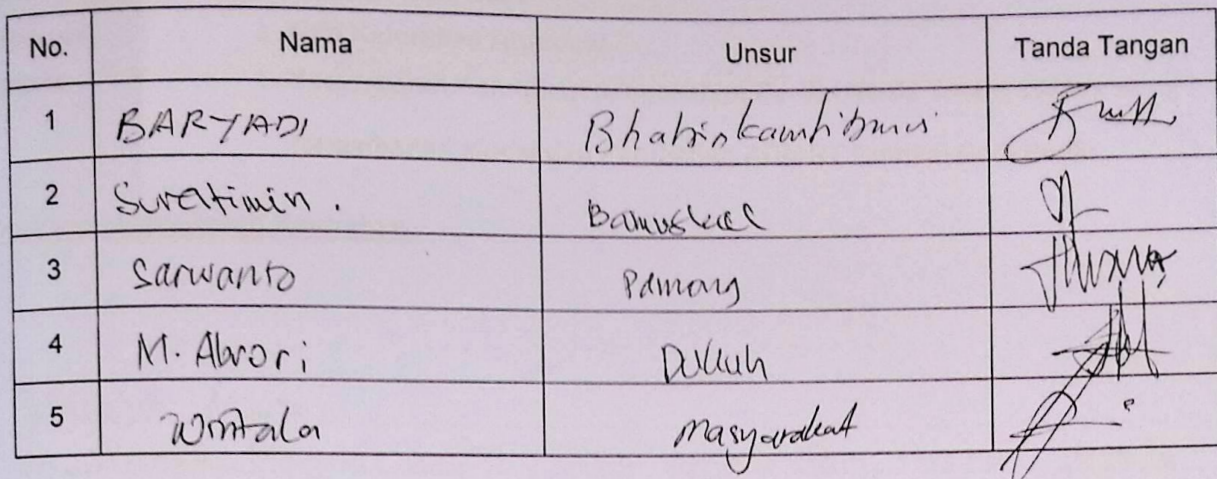 No. Nama Unsur Tanda Tangan
1 BARYADI Bhabinkamtibmas
2 Suratimin. Bamuskal
3 Sarwanto Pamong
4 M. Abrori Dukuh
5 Masyarakat